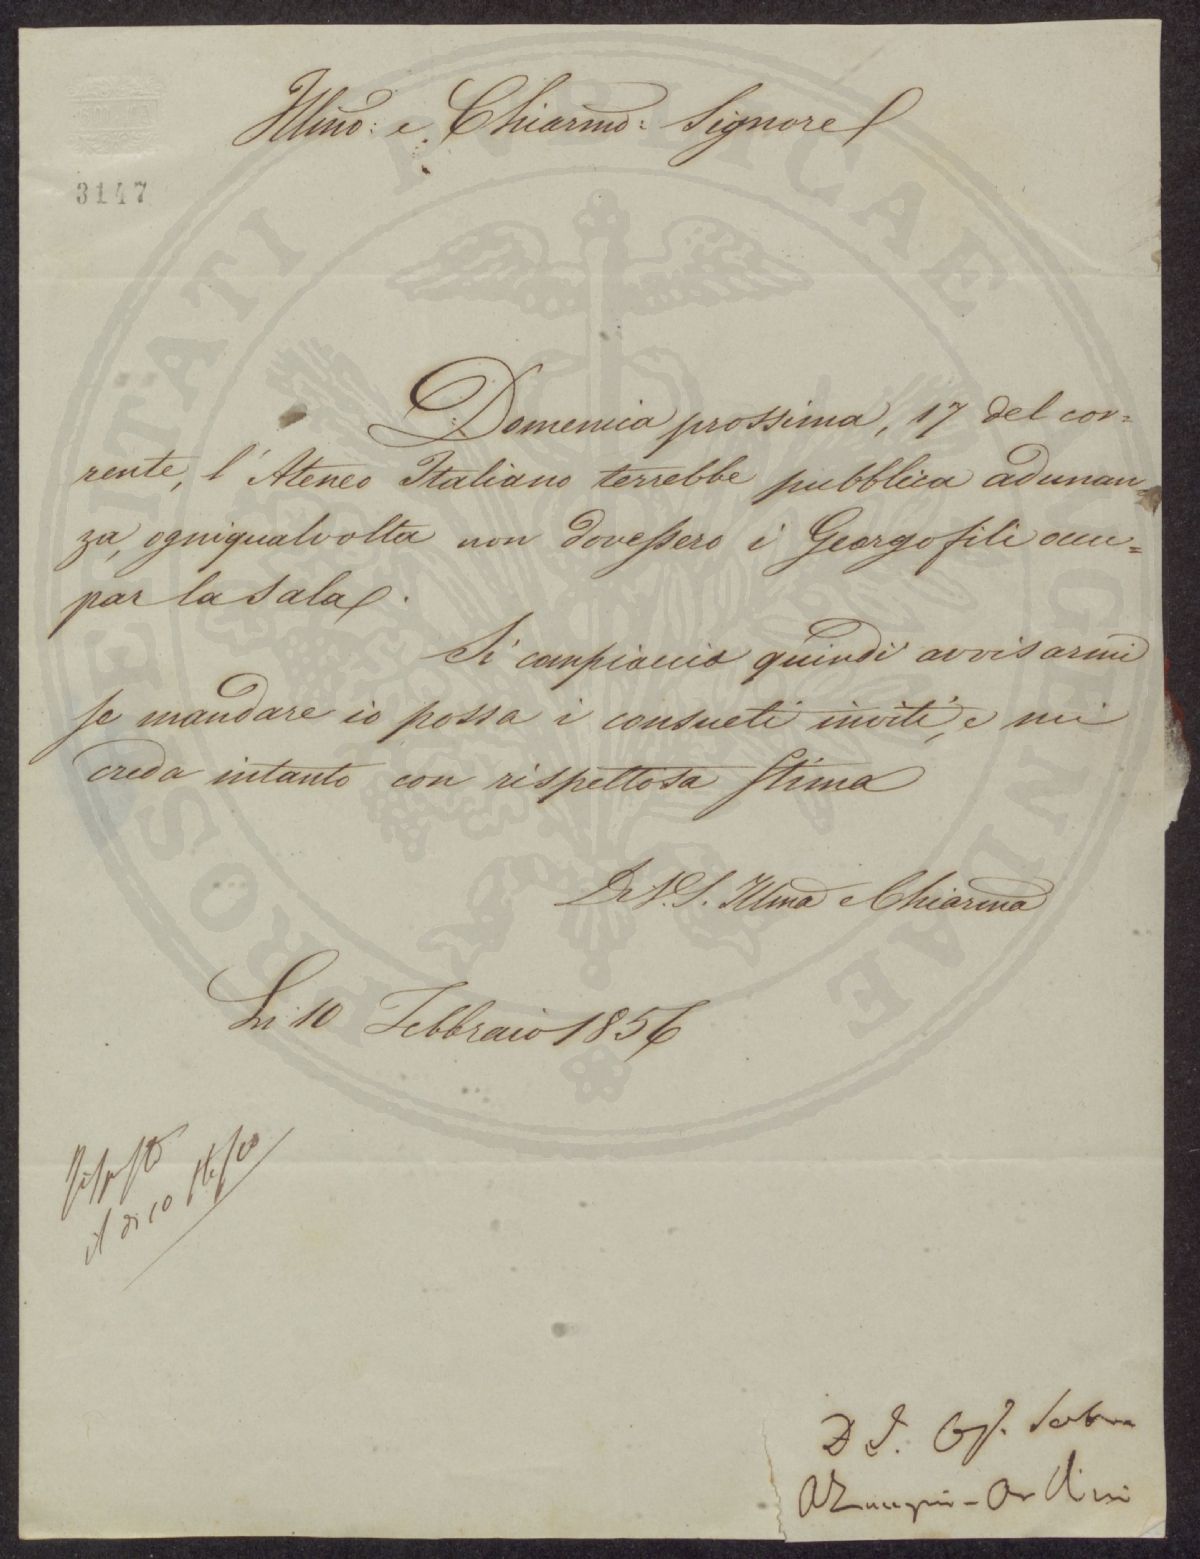 Illmo: e Chiarmo: Signore
3147
Domenica prossima, 17 del cor=
rente, l'Ateneo Italiano terrebbe pubblica adunan=
za, ogniqualvolta non dovessero i Georgofili occu=
par la sala.
Si compiaccia quindi avvisarmi
se mandare io possa i consueti inviti, e mi
creda intanto con rispettosa stima
Di V.S. Illma e Chiarma
Li 10 Febbraio 1856
Risposto
il di 10 stesso
PROSPERITATI PUBLICAE AUGENDAE